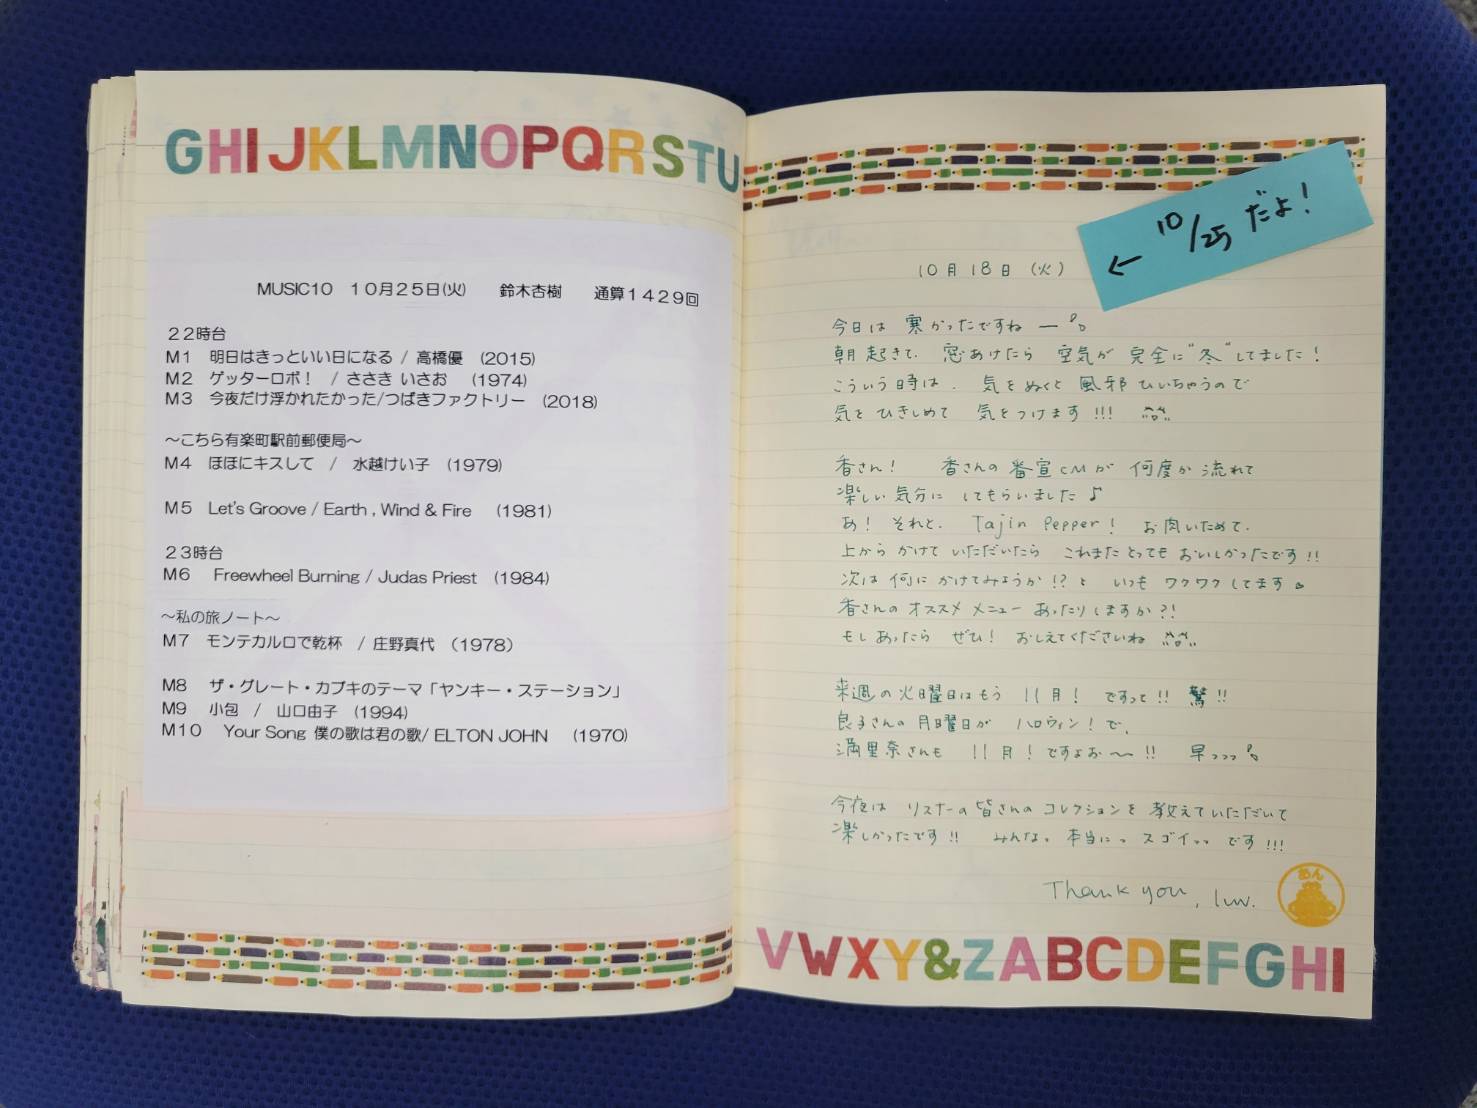 GHIJKLMNOPQRSTU
MUSIC10 10月25日(火) 鈴木杏樹 通算1429回
22時台
M1 明日はきっといい日になる / 高橋優 (2015)
M2 ゲッターロボ! / ささき いさお (1974)
M3 今夜だけ浮かれたかった/つばきファクトリー (2018)
～こちら有楽町駅前郵便局～
M4 ほほにキスして / 水越けい子 (1979)
M5 Let's Groove / Earth , Wind & Fire (1981)
23時台
M6 Freewheel Burning / Judas Priest (1984)
～私の旅ノート～
M7 モンテカルロで乾杯 / 庄野真代 (1978)
M8 ザ・グレート・カブキのテーマ「ヤンキー・ステーション」
M9 小包 / 山口由子 (1994)
M10 Your Song 僕の歌は君の歌/ ELTON JOHN (1970)
← 10/25 だよ!
10月18日 (火)
今日は 寒かったですねー
朝起きて、窓あけたら 空気が 完全に"冬"してました!
こういう時は、気をぬくと 風邪ひいちゃうので
気をひきしめて 気をつけます!!!
香さん! 香さんの番宣CMが 何度か流れて
楽しい気分に してもらいました♪
あ! それと、Tajin Pepper! お肉いためて、
上から かけていただいたら これまたとってもおいしかったです!!
次は何にかけてみようか!? と いつも ワクワクしてます
香さんのオススメメニュー あったりしますか?!
もしあったら ぜひ! おしえてくださいね
来週の火曜日はもう 11月! ですって!! 驚!!
良子さんの月曜日が ハロウィン! で、
満里奈さんも 11月! ですよお〜!! 早っっっ
今夜は リスナーの皆さんのコレクションを 教えていただいて
楽しかったです!! みんな、本当にっ スゴイっっ です!!!
Thank you, luv.
あん
VWXY&ZABCDEFGHI